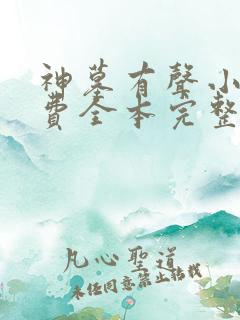 神墓有聲小
費全本完整
凡心聖道
未经同意禁止转载